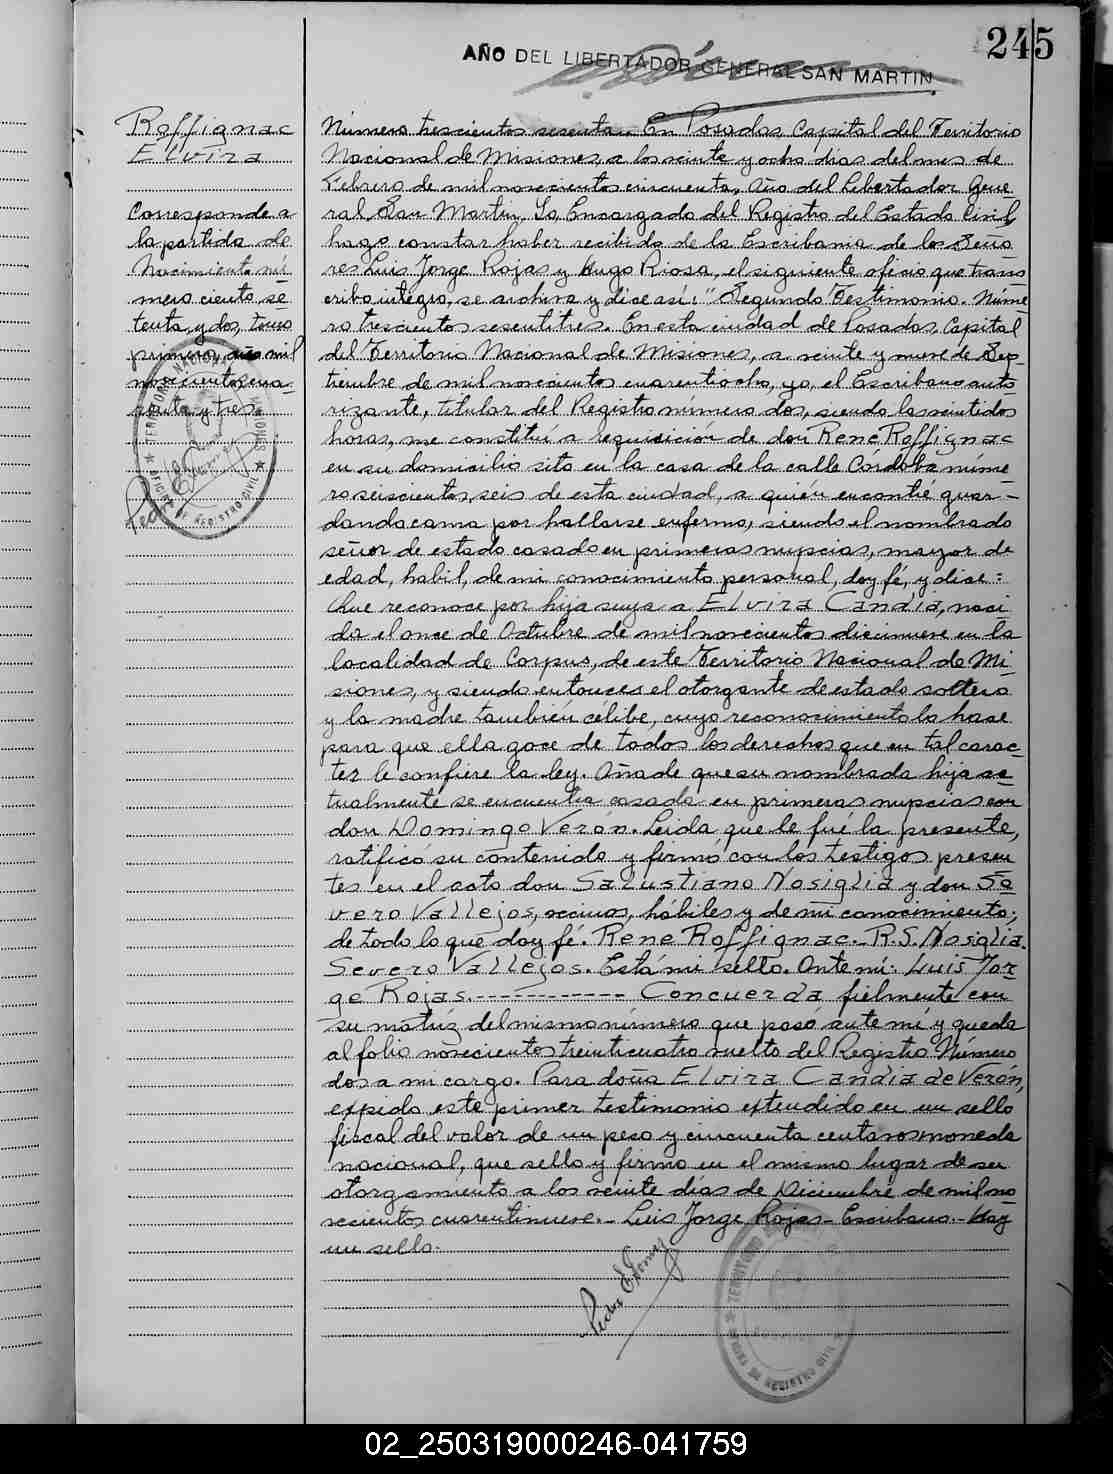 245
AÑO DEL LIBERTADOR GENERAL SAN MARTIN
Roffignac
Elvira
Corresponde a
la partida de
Nacimiento nú
mero ciento se
tenta y dos, tomo
primero, año mil
novecientos cua
renta y tres
TERRITORIO NACIONAL MISIONES
OFICINA DE REGISTRO CIVIL
Número trescientos sesenta. En Posadas Capital del Territorio
Nacional de Misiones, a los veinte y ocho días del mes de
Febrero de mil novecientos cincuenta, Año del Libertador Gene
ral San Martin, Yo Encargado del Registro del Estado Civil,
hago constar haber recibido de la Escribania de los Seño
res Luis Jorge Rojas y Hugo Riosa, el siguiente oficio que trans
cribo integro, se archiva y dice así: " Segundo Testimonio. Núme
ro trescientos sesentitres. En esta ciudad de Posadas, Capital
del Territorio Nacional de Misiones, a veinte y nueve de Sep
tiembre de mil novecientos cuarentiocho, yo, el Escribano auto
rizante, titular del Registro número dos, siendo las veintidos
horas, me constituí a requisición de don Rene Roffignac
en su domicilio sito en la casa de la calle Córdoba núme
ro seiscientos, seis de esta ciudad, a quién encontré guar-
dando cama por hallarse enfermo, siendo el nombrado
señor de estado casado en primeras nupcias, mayor de
edad, habil, de mi conocimiento personal, doy fé, y dice:
Que reconoce por hija suya a Elvira Candia, naci
da el once de Octubre de mil novecientos diecinueve en la
localidad de Corpus, de este Territorio Nacional de Mi
siones, y siendo entonces el otorgante de estado soltero
y la madre también célibe, cuyo reconocimiento lo hace
para que ella goce de todos los derechos que en tal carac
ter le confiere la ley. Añade que su nombrada hija ac
tualmente se encuentra casada en primeras nupcias con
don Domingo Verón. Leida que le fué la presente,
ratificó su contenido y firmó con los testigos presen
tes en el acto don Salustiano Nosiglia y don Se
vero Vallejos, vecinos, hábiles y de mi conocimiento;
de todo lo que doy fé. Rene Roffignac.- R. S. Nosiglia.
Severo Vallejos. Está mi sello. Ante mi: Luis Jor
ge Rojas.------------ Concuerda fielmente con
su matriz del mismo número que pasó ante mí y queda
al folio novecientos treinticuatro vuelto del Registro Número
dos a mi cargo. Para doña Elvira Candia de Verón,
expido este primer testimonio extendido en un sello
fiscal del valor de un peso y cincuenta centavos moneda
nacional, que sello y firmo en el mismo lugar de su
otorgamiento a los veinte días de Diciembre de mil no
vecientos cuarentinueve.- Luis Jorge Rojas - Escribano.- Hay
un sello.
02_250319000246-041759